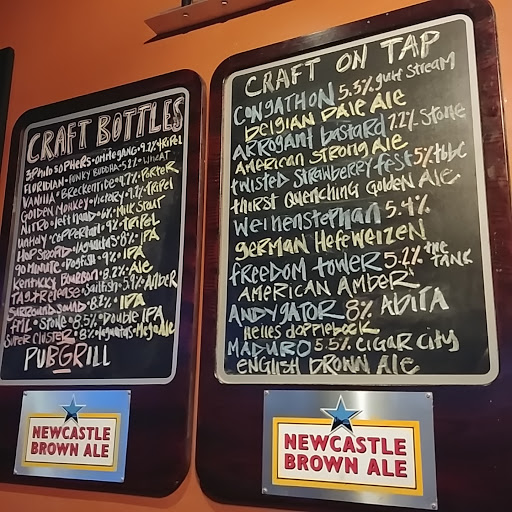 CRAFT BOTTLES
3 PhiloSOPHERS • OMMEGANG • 9.7% TRIPEL
FLORIDIAN • FUNKY BUDDHA • 5.2% WHEAT
VANILLA • Breckenride • 4.7% PORTER
GOLDEN MONKEY • VICTORY • 9.5% TRIPEL
NITRO • left Hand • 6% MILK STOUT
UNHOLY • COPPERTAIL • 9% TRIPEL
HOP STOOPID • LAGUNITAS 8% IPA
90 MINUTE • Dogfish • 9% IPA
KENTUCKY BOURBON • 8.2% ALE
TAG & RELEASE • Sailfish • 5.9% AMBER
SURROUND SOUND • 8.2% IDA
FML • Stone • 8.5% • DOUBLE IPA
SUPER CLUSTER • 8% lagunitas • Mega Ale
PUBGRILL
NEWCASTLE
BROWN ALE
CRAFT ON TAP
CONGATHON 5.3% gulf Stream
Belgian Pale Ale
ARROGANT bastard 7.2% Stone
AMERICAN Strong Ale
twisted Strawberry fest 5% tbbc
thirst Quenching Golden ALE
Weihenstephan 5.4%
german Hefeweizen
FREEDOM tower 5.2% the TANK
AMERICAN AMBER
ANDYGATOR 8% AbITA
Helles dopplebock
MADURO 5.5% CIGAR CITY
ENGLISH BROWN ALE
NEWCASTLE
BROWN ALE